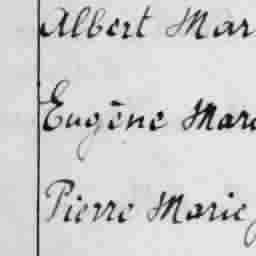 Albert Mar
Eugène Mar
Pierre Marie